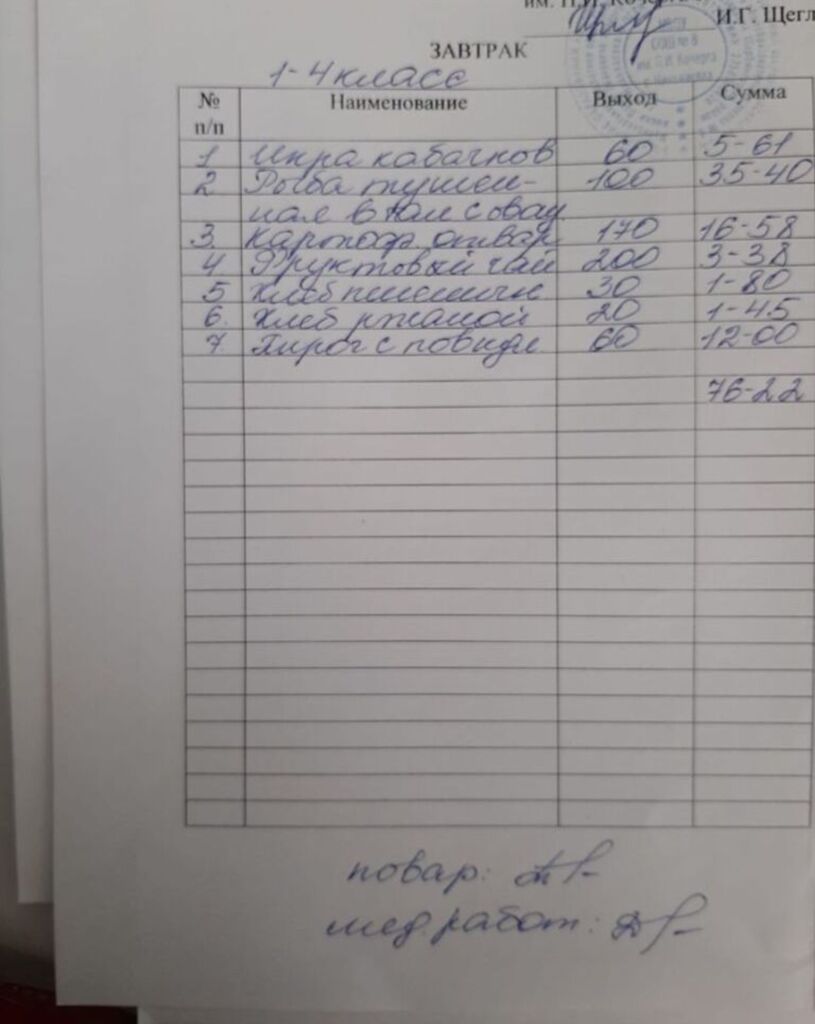 им. П.И. Кочерга
И.Г. Щегл
ЗАВТРАК
1-4 класс
№ п/п Наименование Выход Сумма
1 Икра кабачков 60 5-61
2 Рыба тушен- 100 35-40
ная в том с овощ
3. Картоф. отвар 170 16-58
4 Фруктовый чай 200 3-38
5 Хлеб пшеничн 30 1-80
6. Хлеб ржаной 20 1-45
7 Пирог с повидл 60 12-00
76-22
повар:
мед. работ: